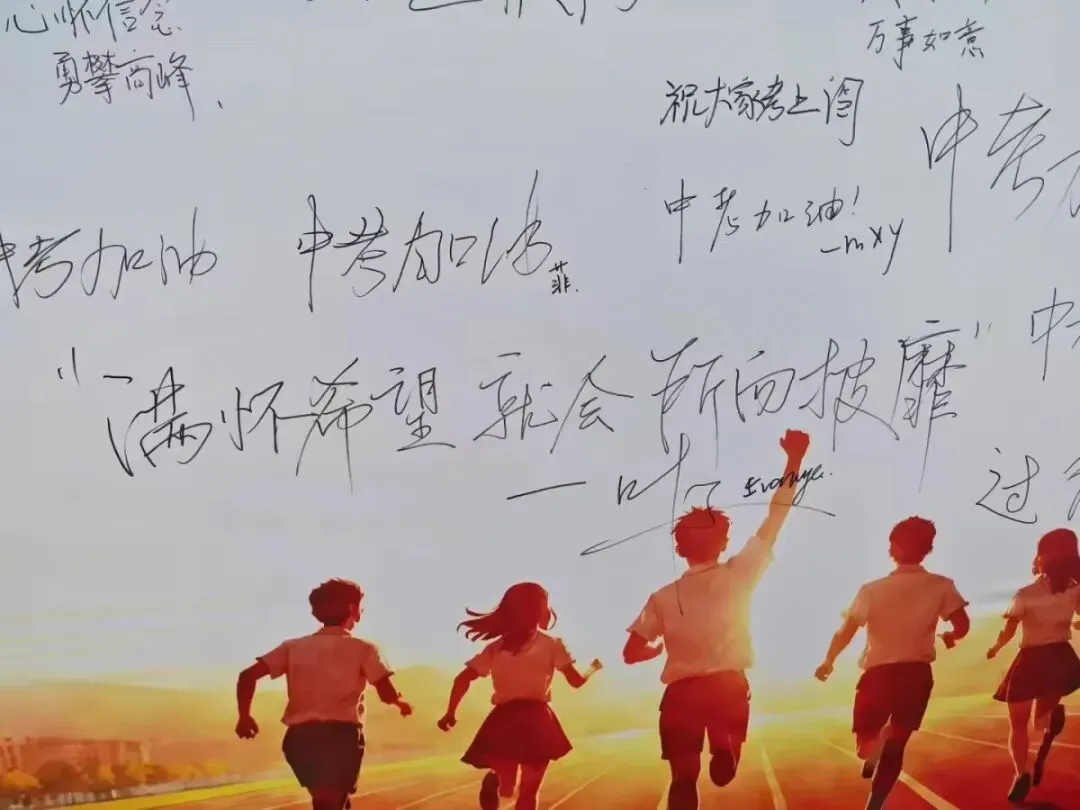 心怀信念
勇攀高峰
万事如意
祝大家考上
中考加油!
-mxy
中考
中考加油
中考加油
菲.
"满怀希望 就会所向披靡"
中
一叶
过